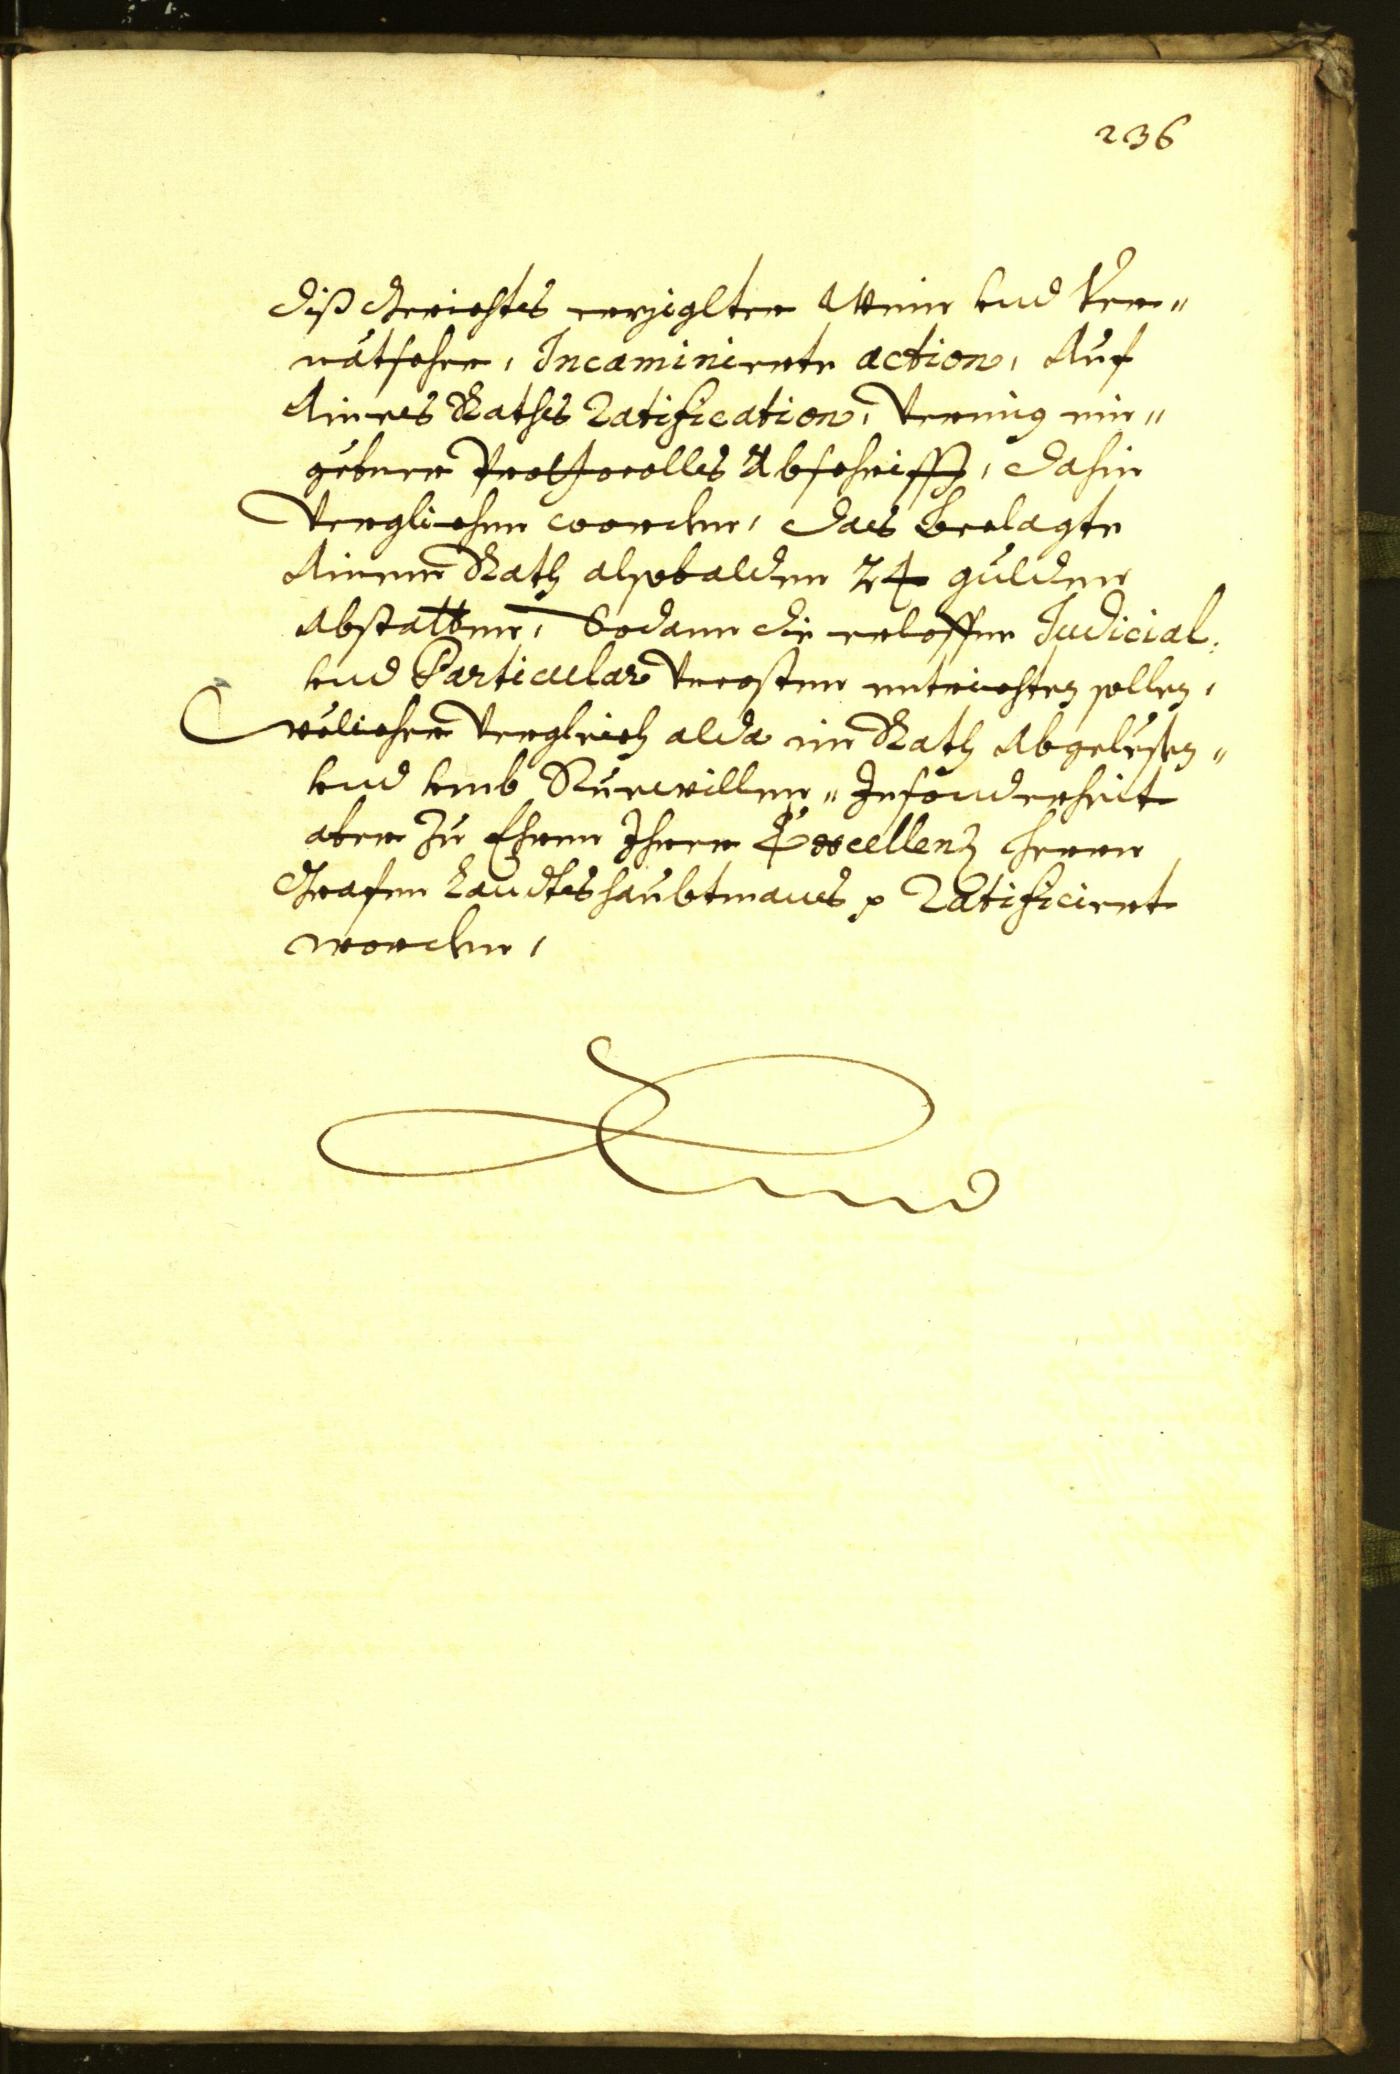 236
diß Gerichts erziglter Wein und Ver=
netschen, Incaminierte action, Auf
Aines Raths Ratification, Vermüg ein=
geben Prothocolls Abschrifft, dahin
Verglichen worden, das beclagte
Ainem Rath alsobalden 24 gulden
Abstatten, Sodann die erloffen Judicial:
und Particular Vncosten entrichten sollen,
welicher Verglich alda im Rath Abgelesen=
und umb Ruewillen= Insonderheit
aber Zu Ehren Ihrer Excellenz Herrn
Grafen Landtshaubtmans p Ratificiert
worden,